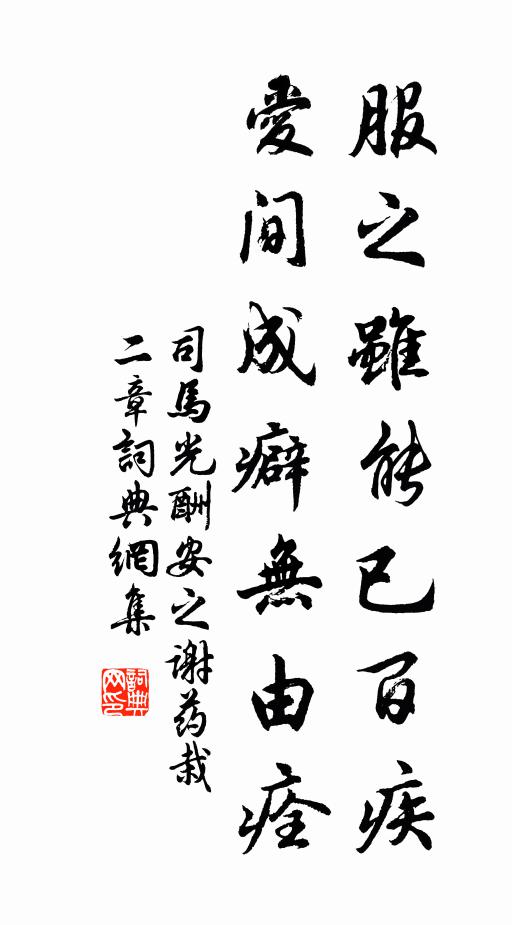 服之雖能已百疾
愛间成癖無由痊
司馬光酬安之谢药栽
二章詞典網集
詞典
网印